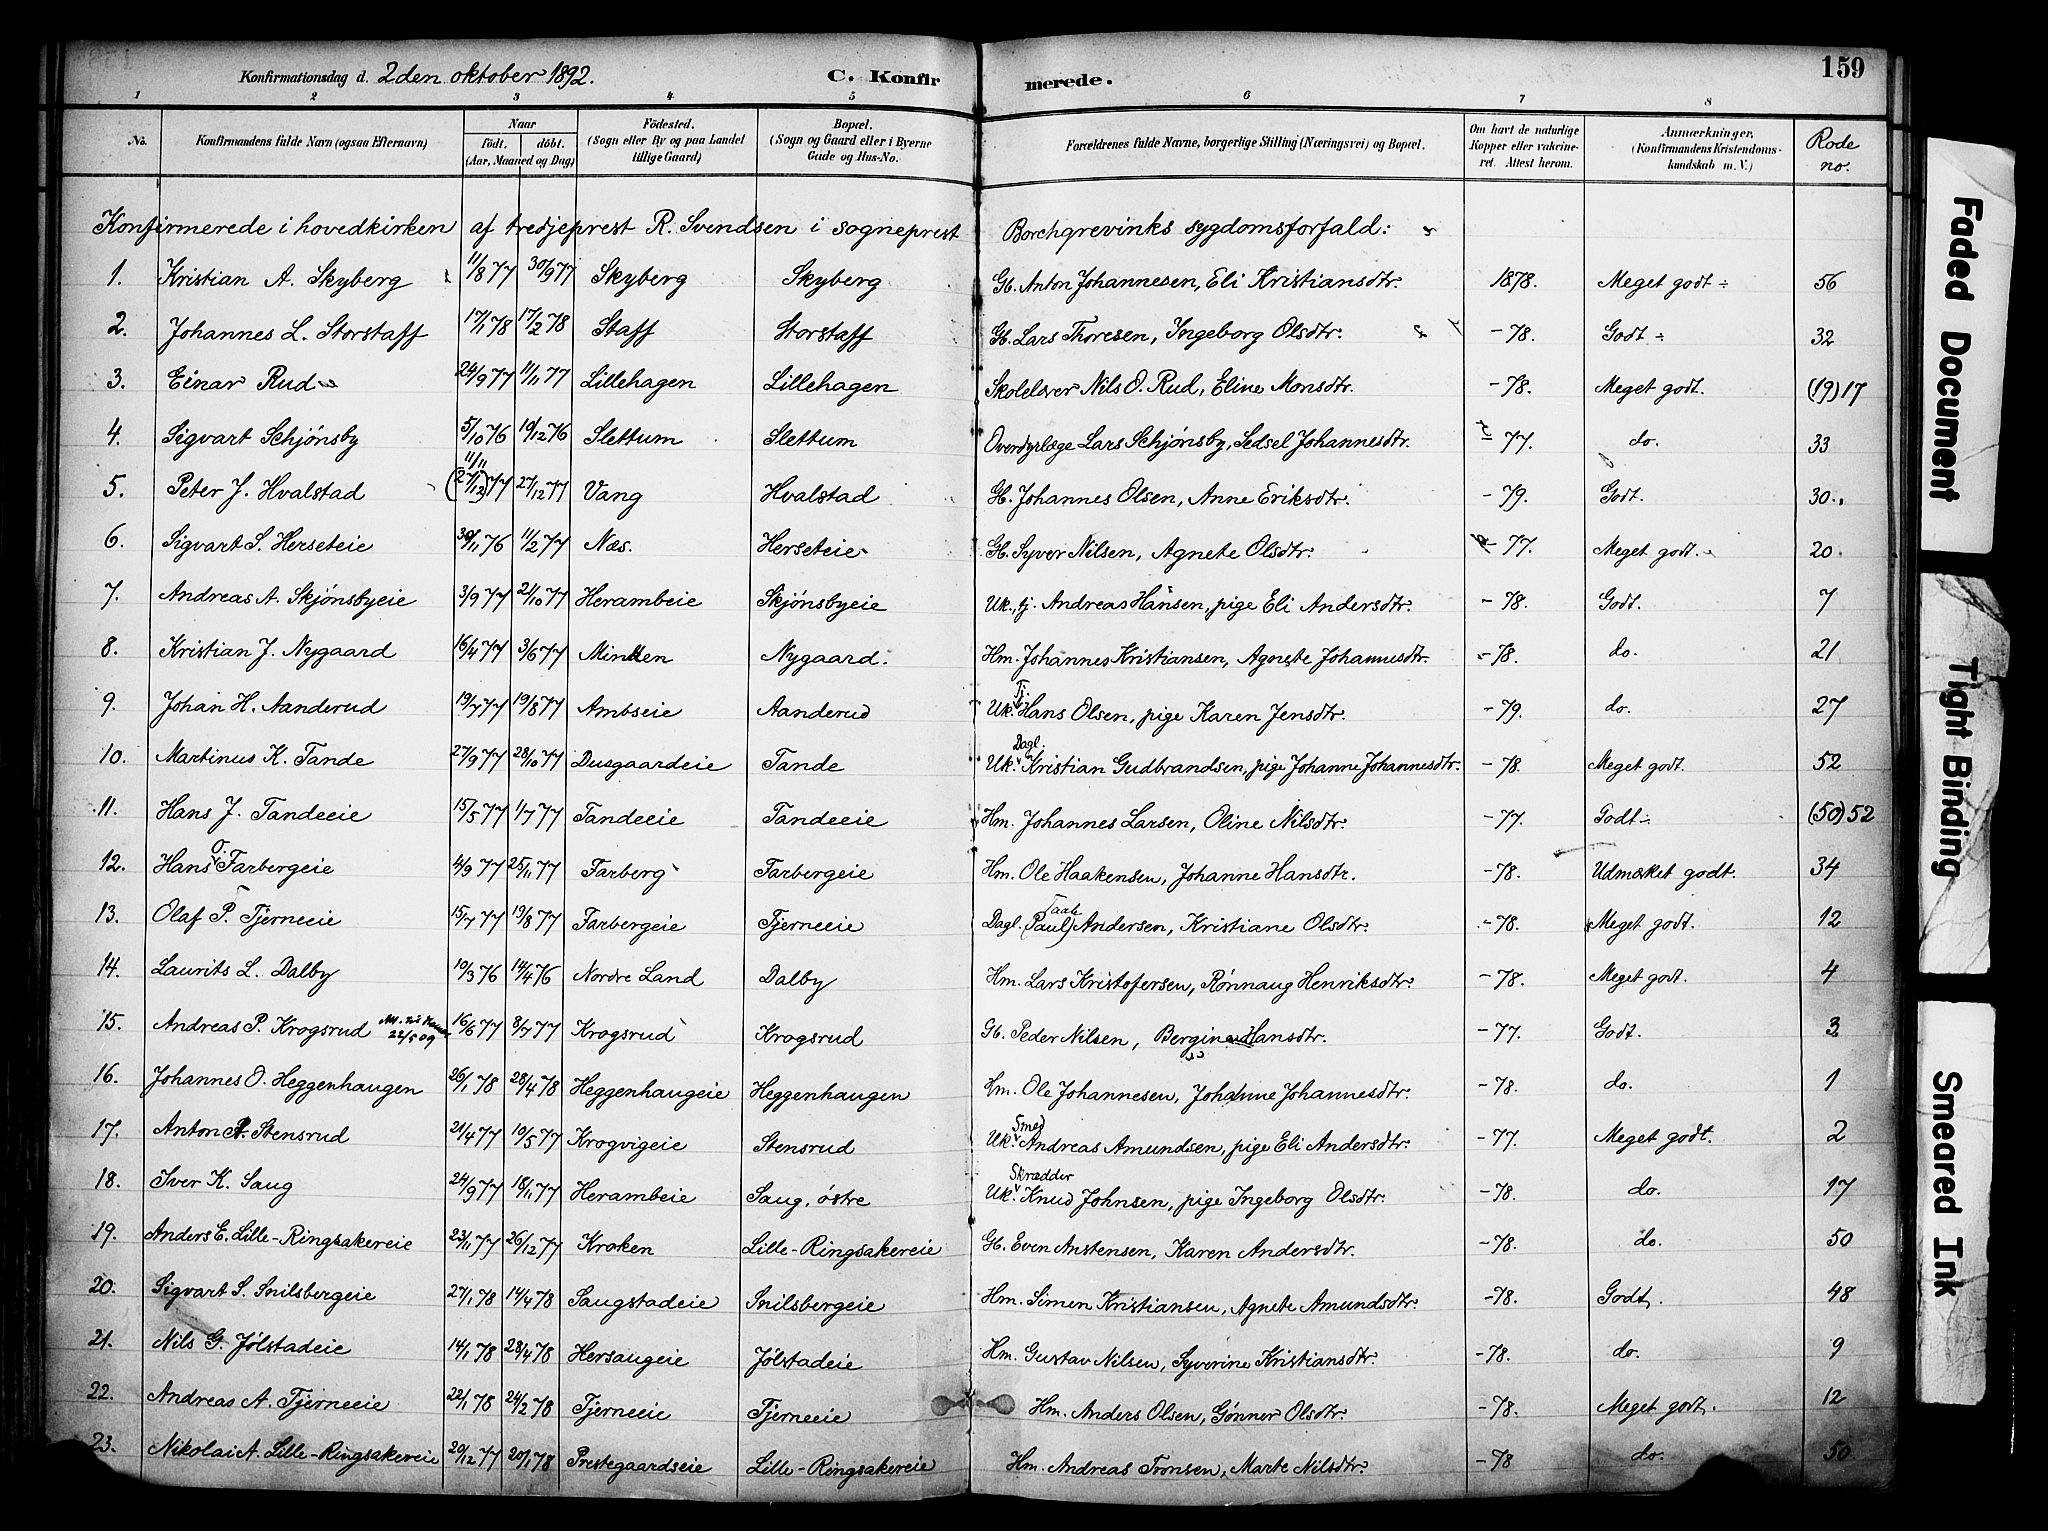 Konfirmationsdag d. 2den oktober 1892. C. Konfirmerede. 159
1 2 3 4 5 6 7 8
No. Konfirmandens fulde Navn (ogsaa Efternavn) Naar født. døbt. (Aar, Maaned og Dag) Fødested. (Sogn eller By og paa Landet tillige Gaard) Bopæl. (Sogn og Gaard eller i Byerne Gade og Hus-No. Forældrenes fulde Navne, borgerlige Stilling (Næringsvei) og Bopæl. Om havt de naturlige Kopper eller vakcineret. Attest herom. Anmærkninger. (Konfirmandens Kristendomskundskab m. V.) Rode no.
Konfirmerede i hovedkirken af tredjeprest R. Svendsen i sogneprest Borchgrevinks sygdomsforfald:
1. Kristian A. Skyberg 11/8 77 30/9 77 Skyberg Skyberg Gb. Anton Johannesen, Eli Kristiansdtr. 1878. Meget godt 56
2. Johannes L. Storstaff 17/1 78 17/2 78 Staff Storstaff Gb. Lars Thoresen, Ingeborg Olsdtr. -78. Godt 32
3. Einar Rud 24/9 77 11/11 77 Lillehagen Lillehagen Skolelærer Nils O. Rud, Eline Monsdtr. -78. Meget godt. (19) 17
4. Sigvart Schjønsby 5/10 76 19/12 76 Slettum Slettum Overdyrlæge Lars Schjønsby, Sedsel Johannesdtr. -77. do. 33
5. Peter J. Hvalstad 11/11 (27/12) 77 27/12 77 Vang Hvalstad Gb. Johannes Olsen, Anne Eriksdtr. -79. Godt. 30.
6. Sigvart S. Herseteie 30/11 76 11/2 77 Næs. Herseteie Gb. Syver Nilsen, Agnete Olsdtr. -77. Meget godt. 20
7. Andreas A. Skjønsbyeie 3/9 77 21/10 77 Herambeie Skjønsbyeie Uk., tj. Andreas Hansen, pige Eli Andersdtr. -78. Godt. 7
8. Kristian J. Nygaard 16/4 77 3/6 77 Minden Nygaard. Hm. Johannes Kristiansen, Agnete Johannesdtr. -78. do. 21
9. Johan H. Aanderud 19/7 77 19/8 77 Ambseie Aanderud Uk. Tj. Hans Olsen, pige Karen Jensdtr. -79. do. 27
10. Martinus K. Tande 27/9 77 28/10 77 Dusgaardeie Tande Uk. Dagl. Kristian Gudbrandsen, pige Johanne Johannesdtr. -78. Meget godt. 52
11. Hans J. Tandeeie 15/5 77 1/7 77 Tandeeie Tandeeie Hm. Johannes Larsen, Oline Nilsdtr. -77. Godt (50) 52
12. Hans O. Farbergeie 4/9 77 25/11 77 Farberg Farbergeie Hm. Ole Haakensen, Johanne Hansdtr. -78. Udmærket godt. 34
13. Olaf P. Tjerneeie 15/7 77 19/8 77 Farbergeie Tjerneeie Dagl. (Paul) Andersen, Kristiane Olsdtr. -78. Meget godt. 12
14. Laurits L. Dalby 10/3 76 14/4 76 Nordre Land Dalby Hm. Lars Kristofersen, Rønnaug Henriksdtr. -78. Meget godt. 4
15. Andreas P. Krogsrud 22/5 09 16/6 77 8/7 77 Krogsrud Krogsrud Gb. Peder Nilsen, Bergine Hansdtr. -77. Godt. 3
16. Johannes O. Heggenhaugen 26/1 78 28/4 78 Heggenhaugeie Heggenhaugen Hm. Ole Johannesen, Johanne Johannesdtr. -78. do. 1
17. Anton A. Stensrud 21/4 77 10/5 77 Krogvigeie Stensrud Uk. Smed Andreas Amundsen, pige Eli Andersdtr. -77. Meget godt. 2
18. Iver K. Saug 24/9 77 18/11 77 Herambeie Saug, østre Uk. Skrædder Knud Johnsen, pige Ingeborg Olsdtr. -78. do. 17
19. Anders E. Lille-Ringsakereie 23/11 77 26/12 77 Kroken Lille-Ringsakereie Gb. Even Anstensen, Karen Andersdtr. -78. do. 50
20. Sigvart S. Snilsbergeie 27/1 78 14/4 78 Saugstadeie Snilsbergeie Hm. Simen Kristiansen, Agnete Amundsdtr. -78. Godt. 48
21. Nils G. Jølstadeie 14/1 78 28/4 78 Hersaugeie Jølstadeie Hm. Gustav Nilsen, Syverine Kristiansdtr. -78. do. 9
22. Andreas A. Tjerneeie 22/1 78 24/2 78 Tjerneeie Tjerneeie Hm. Anders Olsen, Gønner Olsdtr. -78. Meget godt. 12
23. Nikolai A. Lille-Ringsakereie 20/12 77 20/1 78 Prestegaardseie Lille-Ringsakereie Hm. Andreas Tronsen, Marte Nilsdtr. -78 do. 50
Faded Document
Tight Binding
Smeared Ink